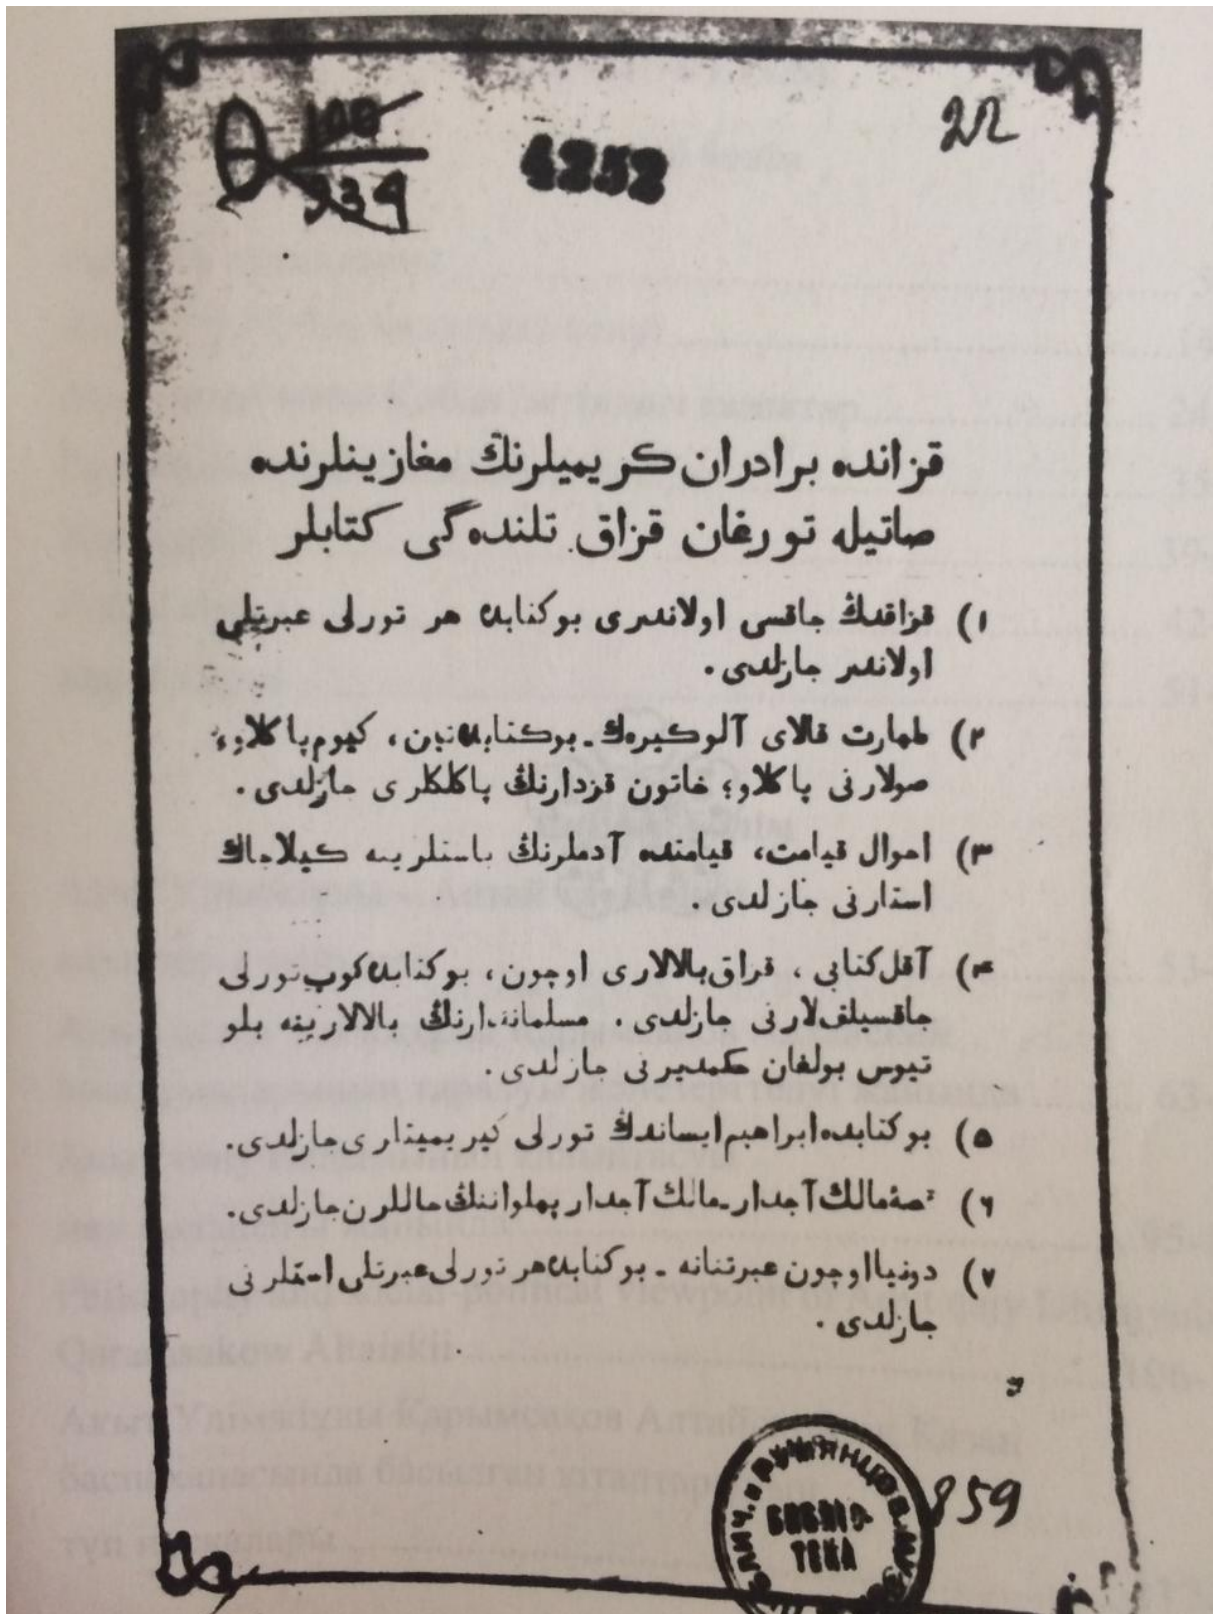 22
100
939
4252
قزانده برادران كريميلرنڭ مغازينلرنده
صاتيله تورغان قزاق تلنده گى كتابلر
١) قزاقدڭ جاقسى اولاندرى بوكتابده هر تورلى عبرتلى
اولاندر جازلدى.
٢) طهارت قالاى آلوكيرەك ـ بوكتابده تين، كيوم پاكلاو،
صولارنى پاكلاو؛ خاتون قزدارنڭ پاكلكلرى جازلدى.
٣) احوال قيامت، قيامتده آدملرنڭ باستلرينه كيلاجاك
استارنى جازلدى.
۴) آقل كتابى، قزاق بالالارى اوچون، بوكتابده كوب تورلى
جاقسيلقلارنى جازلدى. مسلمانندارنڭ بالالارينه بلو
تيوس بولغان حكمديرنى جازلدى.
۵) بوكتابده ابراهيم ايساندڭ تورلى كيريميتارى جازلدى.
۶) قصۀ مالك آجدار ـ مالك آجدار پهلواننڭ حاللرن جازلدى.
٧) دونيا اوچون عبرتنانه ـ بوكتابده هر تورلى عبرتلى استلرنى
جازلدى.
859
РУМЯНЦОВ.
БИБЛІО
ТЕКА